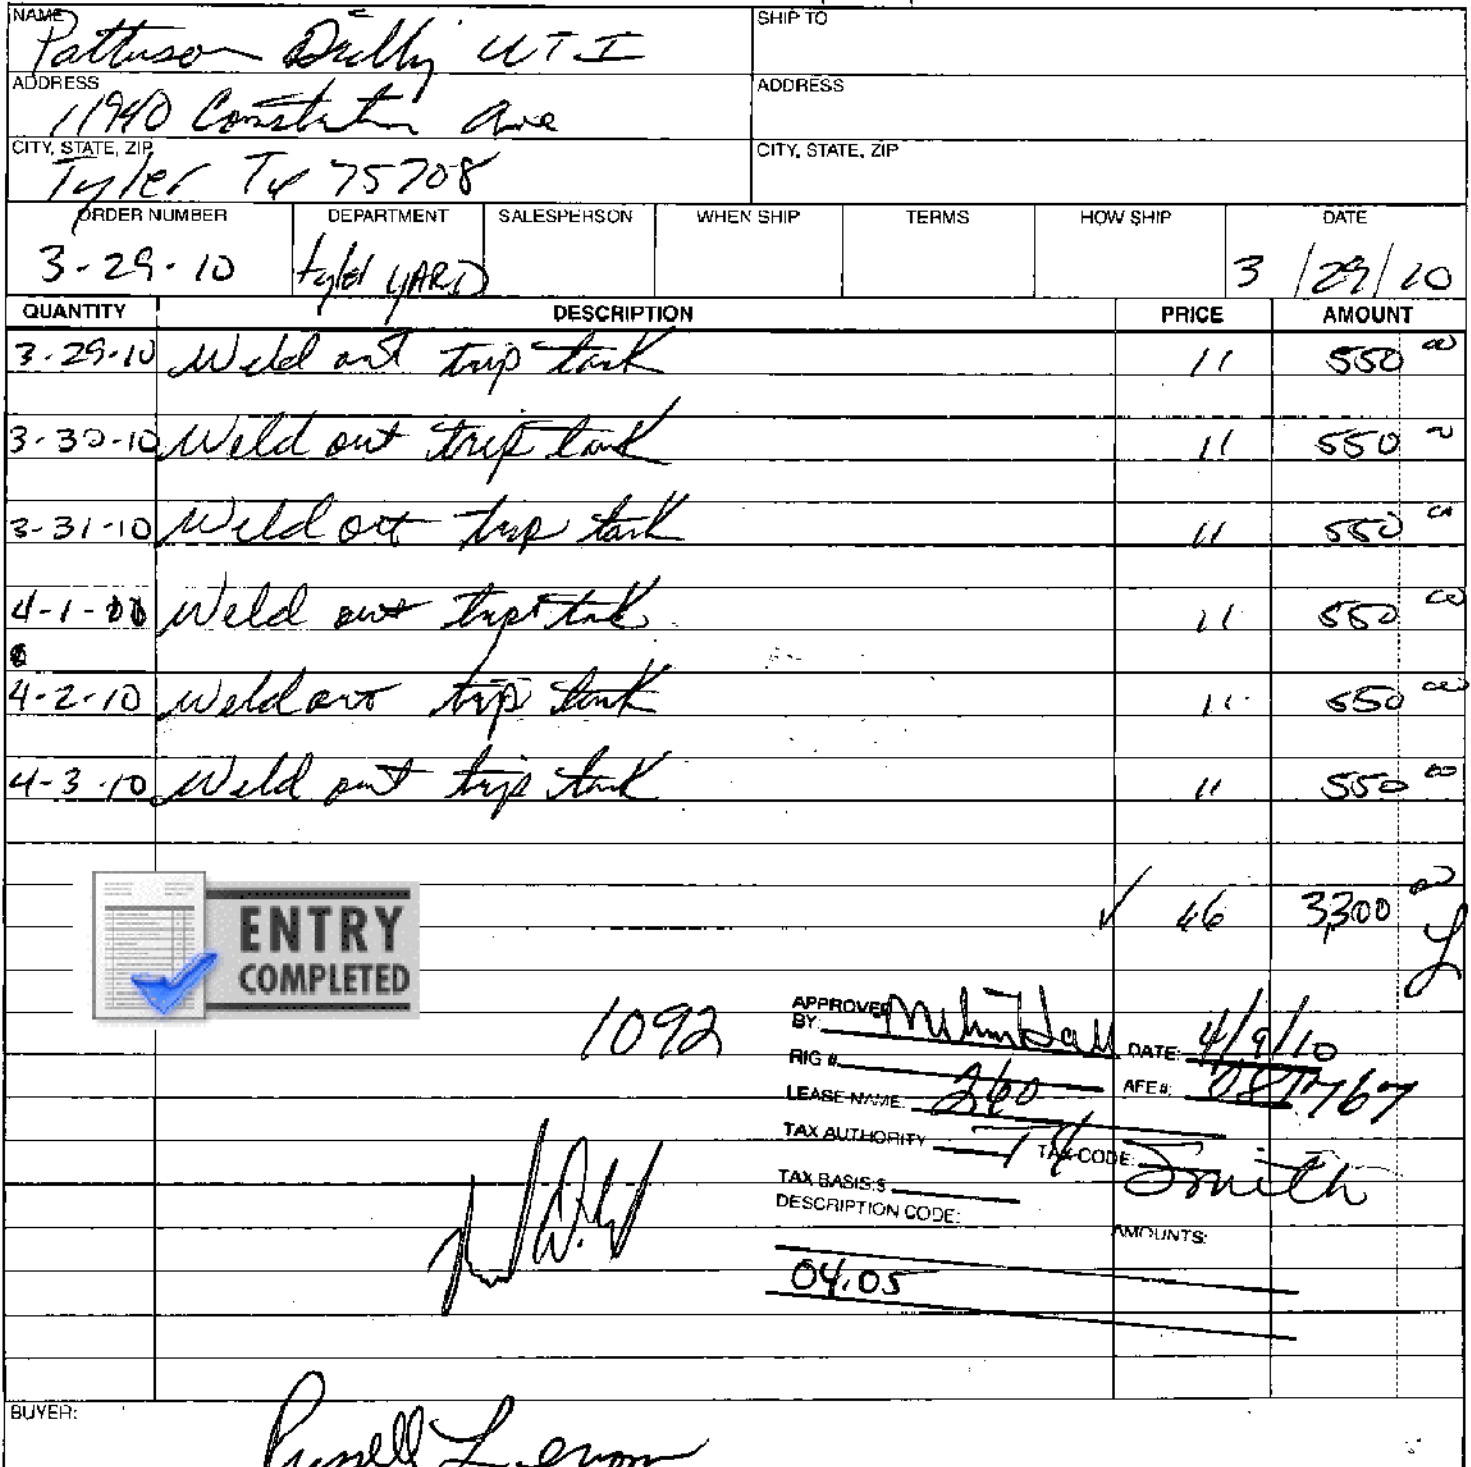 NAME SHIP TO
Patterson Drillg UTI
ADDRESS ADDRESS
11940 Ave
CITY, STATE, ZIP CITY, STATE, ZIP
Tyler Tx 75708
ORDER NUMBER DEPARTMENT SALESPERSON WHEN SHIP TERMS HOW SHIP DATE
3-29-10 YARD 3/29/10
QUANTITY DESCRIPTION PRICE AMOUNT
3-29-10 Weld out trip tank 11 550 00
3-30-10 Weld out trip tank 11 550
3-31-10 Weld out trip tank 11 550 00
4-1- Weld out trip tank 11 550 00
4-2-10 Weld out trip tank 11 550 00
4-3-10 Weld out trip tank 11 550 00
ENTRY
COMPLETED
3,300 00
1092
APPROVED
BY: DATE: 4/9/10
RIG #. 260 AFE#:
LEASE NAME:
TAX AUTHORITY TAX CODE: Smith
TAX BASIS:$
DESCRIPTION CODE: AMOUNTS:
04.05
BUYER:
Russell